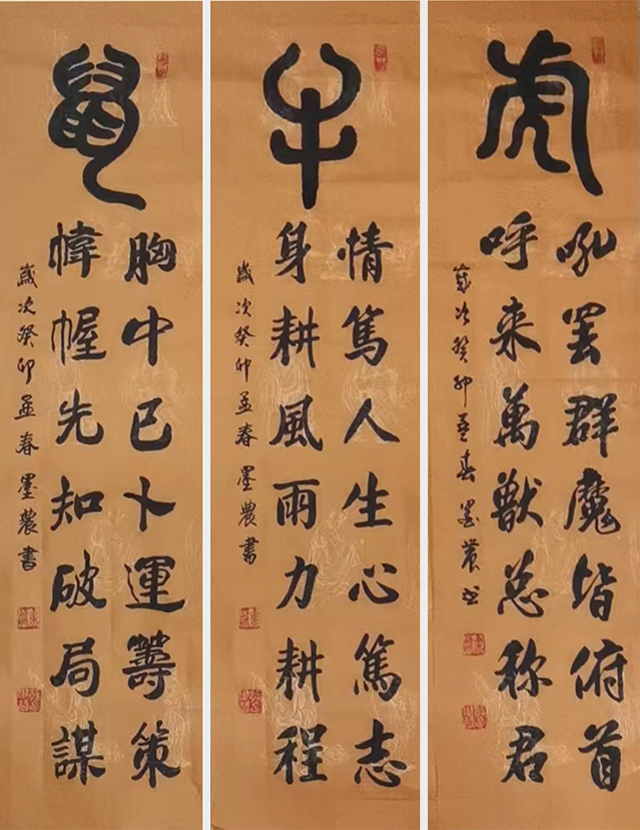 鼠
胸中已卜運籌策
幃幄先知破局謀
歲次癸卯孟春墨農書
牛
情篤人生心篤志
身耕風雨力耕程
歲次癸卯孟春墨農書
虎
吼罢群魔皆俯首
呼来萬獸总称君
歲次癸卯孟春墨農书